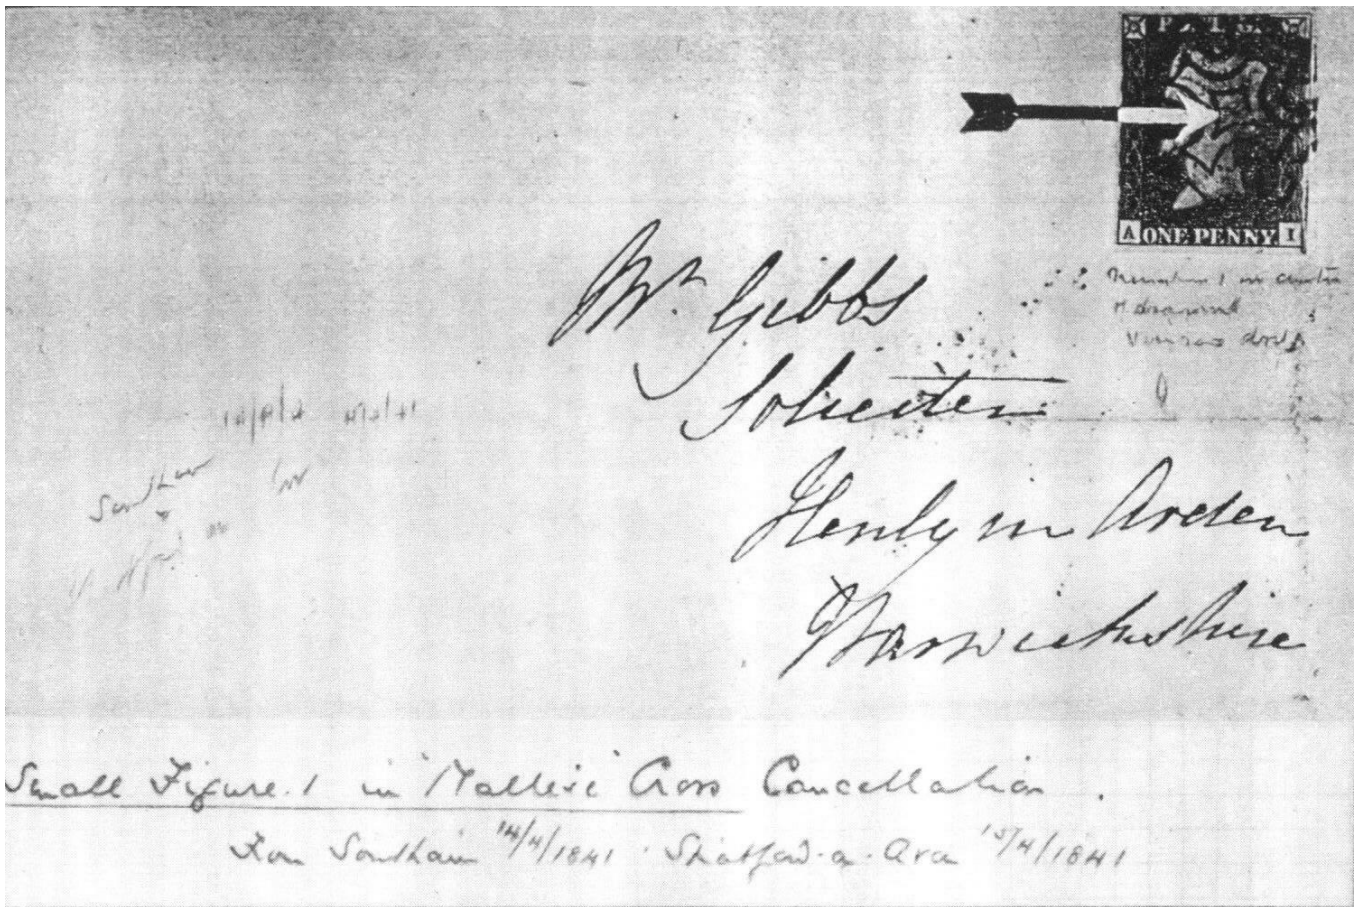 P
A ONE PENNY I
Number 1 in centre
Mr. Gibbs
Solicitor
Henly in Arden
Warwickshire
Southam
Small Figure 1 in "Maltese" Cross Cancellation.
From Southam 14/4/1841. Stratford. a. Avon 15/4/1841